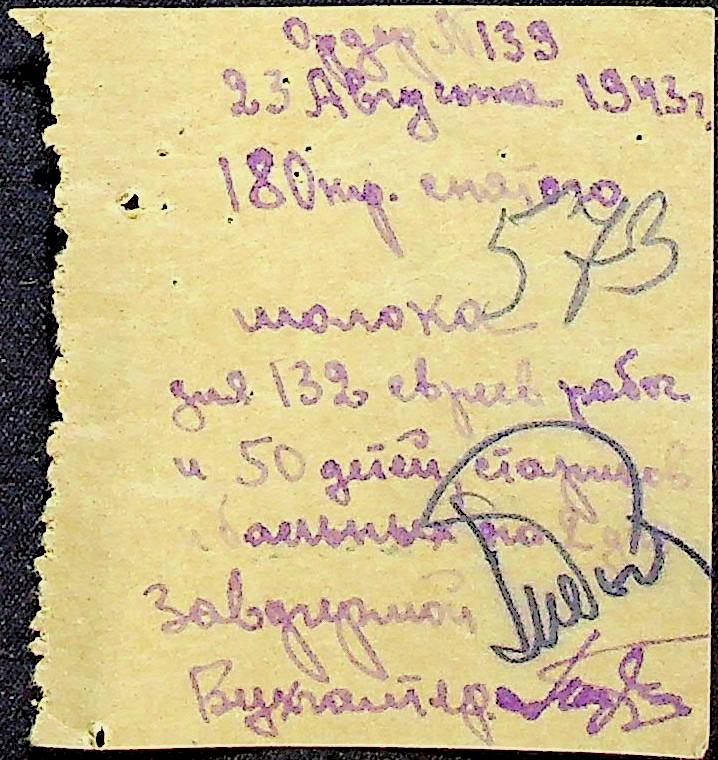 Ордер № 139
23 Августа 1943 г.
180 кгр. снятого
573
молока
для 132 евреев рабоч.
и 50 детей, стариков
и больных на 2 дн
Завфермой
Бухгалтер